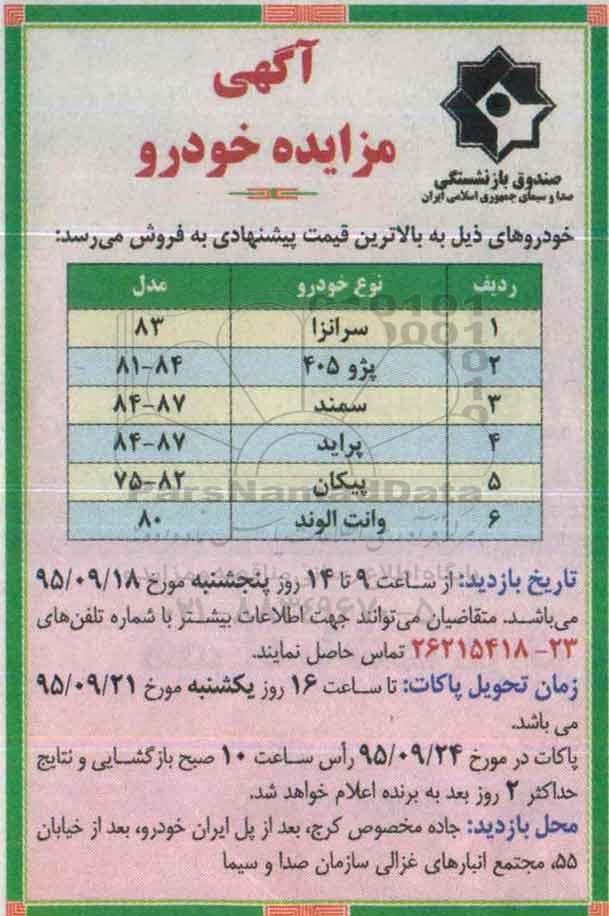 آگهی
مزایده خودرو
صندوق بازنشستگی
صدا و سیمای جمهوری اسلامی ایران
خودروهای ذیل به بالاترین قیمت پیشنهادی به فروش می‌رسد:
ردیف نوع خودرو مدل
۱ سرانزا ۸۳
۲ پژو ۴۰۵ ۸۱-۸۴
۳ سمند ۸۴-۸۷
۴ پراید ۸۴-۸۷
۵ پیکان ۷۵-۸۲
۶ وانت الوند ۸۰
ParsNamadData
تاریخ بازدید: از ساعت ۹ تا ۱۴ روز پنجشنبه مورخ ۹۵/۰۹/۱۸
می‌باشد. متقاضیان می‌توانند جهت اطلاعات بیشتر با شماره تلفن‌های
۲۳- ۲۶۲۱۵۴۱۸ تماس حاصل نمایند.
زمان تحویل پاکات: تا ساعت ۱۶ روز یکشنبه مورخ ۹۵/۰۹/۲۱
می باشد.
پاکات در مورخ ۹۵/۰۹/۲۴ رأس ساعت ۱۰ صبح بازگشایی و نتایج
حداکثر ۲ روز بعد به برنده اعلام خواهد شد.
محل بازدید: جاده مخصوص کرج، بعد از پل ایران خودرو، بعد از خیابان
۵۵، مجتمع انبارهای غزالی سازمان صدا و سیما